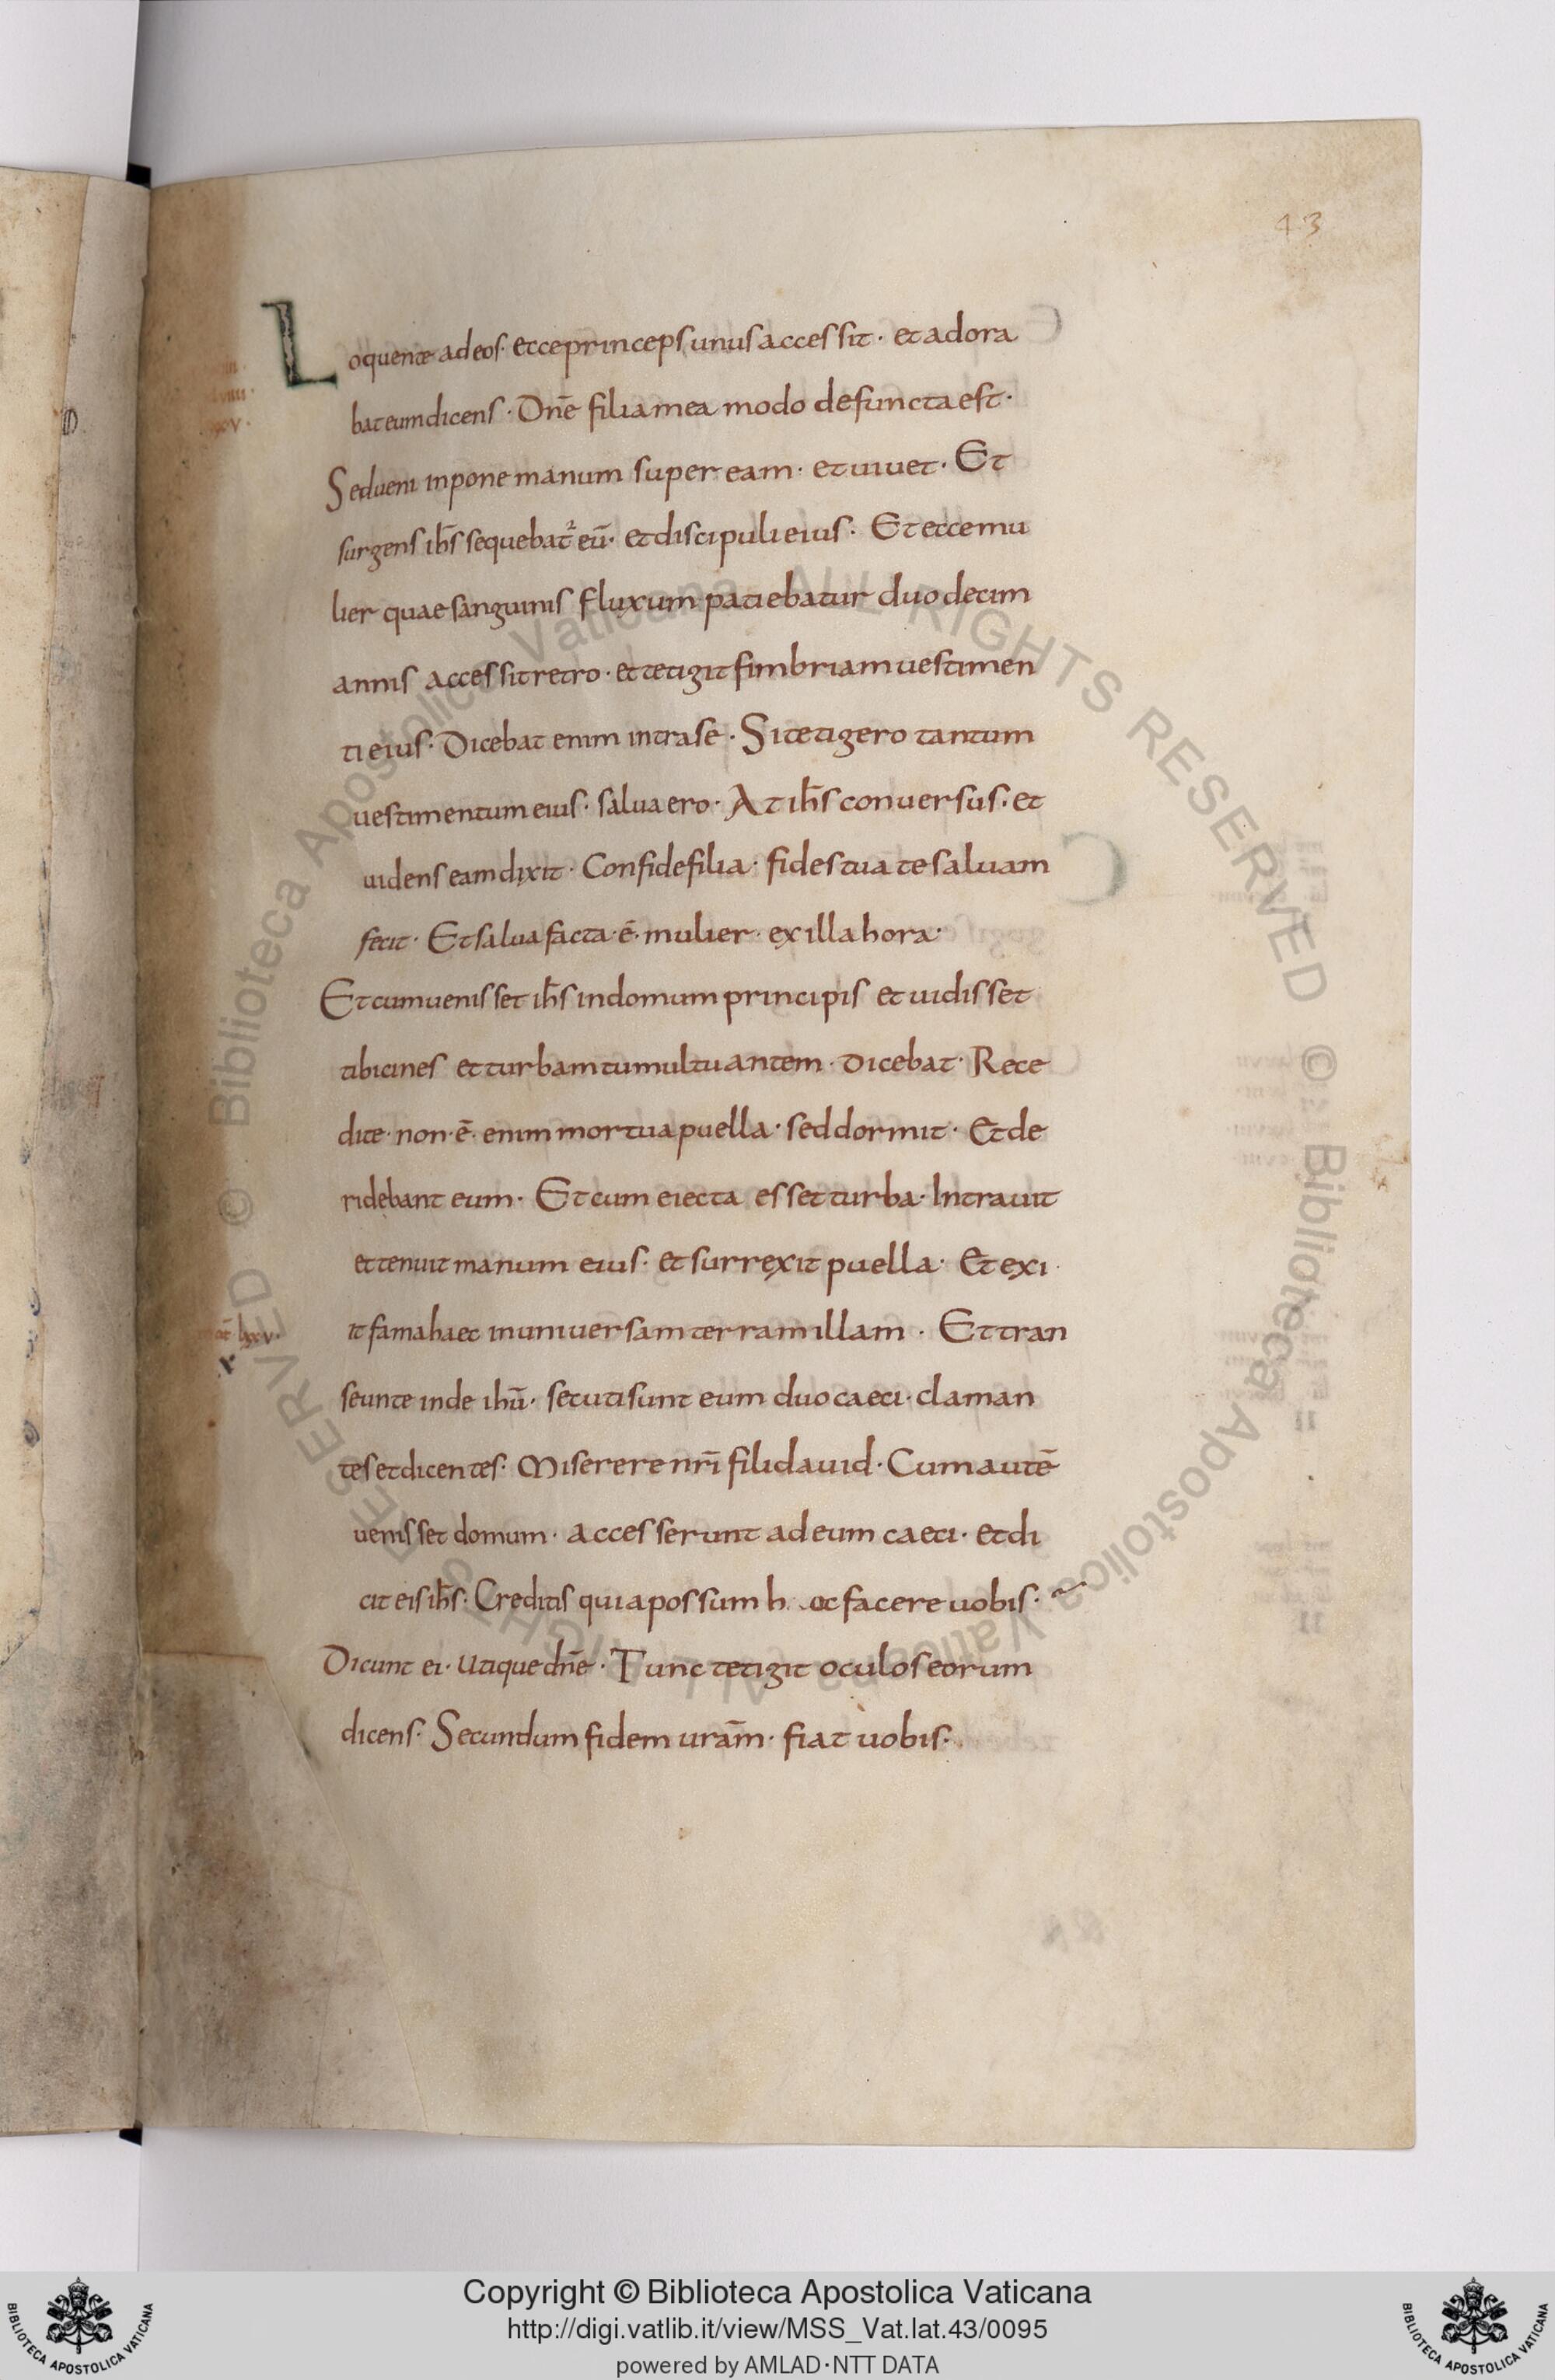 43
Loquente ad eos· ecce princeps unus accessit· et adora
bat eum dicens· Dn̄e filia mea modo defuncta est·
Sed ueni inpone manum super eam· et uiuet· Et
surgens ih̄s sequebat᷑ eū· et discipuli eius· Et ecce mu
lier quae sanguinis fluxum patiebatur duodecim
annis accessit retro· et tetigit fimbriam uestimen
ti eius· Dicebat enim intra se· Si tetigero tantum
uestimentum eius· salua ero· At ih̄s conuersus· et
uidens eam dixit· Confide filia· fides tua te saluam
fecit· Et salua facta·ē· mulier· ex illa hora·
Et cum uenisset ih̄s in domum principis et uidisset
tibicines et turbam tumultuantem· dicebat· Rece
dite· non·ē· enim mortua puella· sed dormit· Et de
ridebant eum· Et cum eiecta esset turba· Intrauit
et tenuit manum eius· et surrexit puella· Et exi
it fama haec in uniuersam terram illam· Et tran
seunte inde ihū· secuti sunt eum duo caeci· claman
tes et dicentes· Miserere nr̄i fili dauid· Cum autē
uenisset domum· accesserunt ad eum caeci· et di
cit eis ih̄s· Creditis quia possum h oc facere uobis·
Dicunt ei· Utique dn̄e· Tunc tetigit oculos eorum
dicens· Secundum fidem urām· fiat uobis·
© Biblioteca Apostolica Vaticana ALL RIGHTS RESERVED © Biblioteca Apostolica Vaticana ALL RIGHTS RESERVED
Copyright © Biblioteca Apostolica Vaticana
http://digi.vatlib.it/view/MSS_Vat.lat.43/0095
powered by AMLAD·NTT DATA
BIBLIOTECA APOSTOLICA VATICANA
BIBLIOTECA APOSTOLICA VATICANA